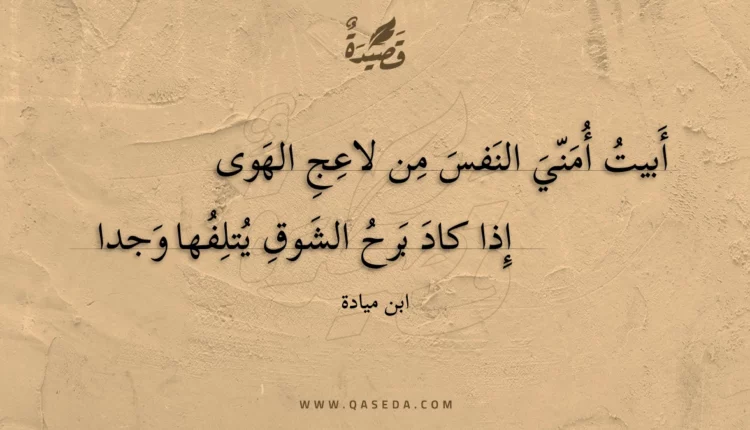 قَصِيدَةٌ
أَبيتُ أُمَنّيَ النَفسَ مِن لاعِجِ الهَوى
إِذا كادَ بَرحُ الشَوقِ يُتلِفُها وَجدا
ابن ميادة
WWW.QASEDA.COM